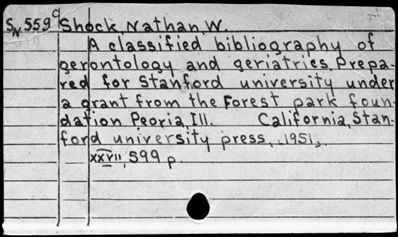 SN559c Shock, Nathan W.
A classified bibliography of
gerontology and geriatrics, Prepa-
red for Stanford university under
a grant from the Forest park foun-
dation Peoria, Ill. California, Stan-
ford university press, 1951.
xxvii, 599 p